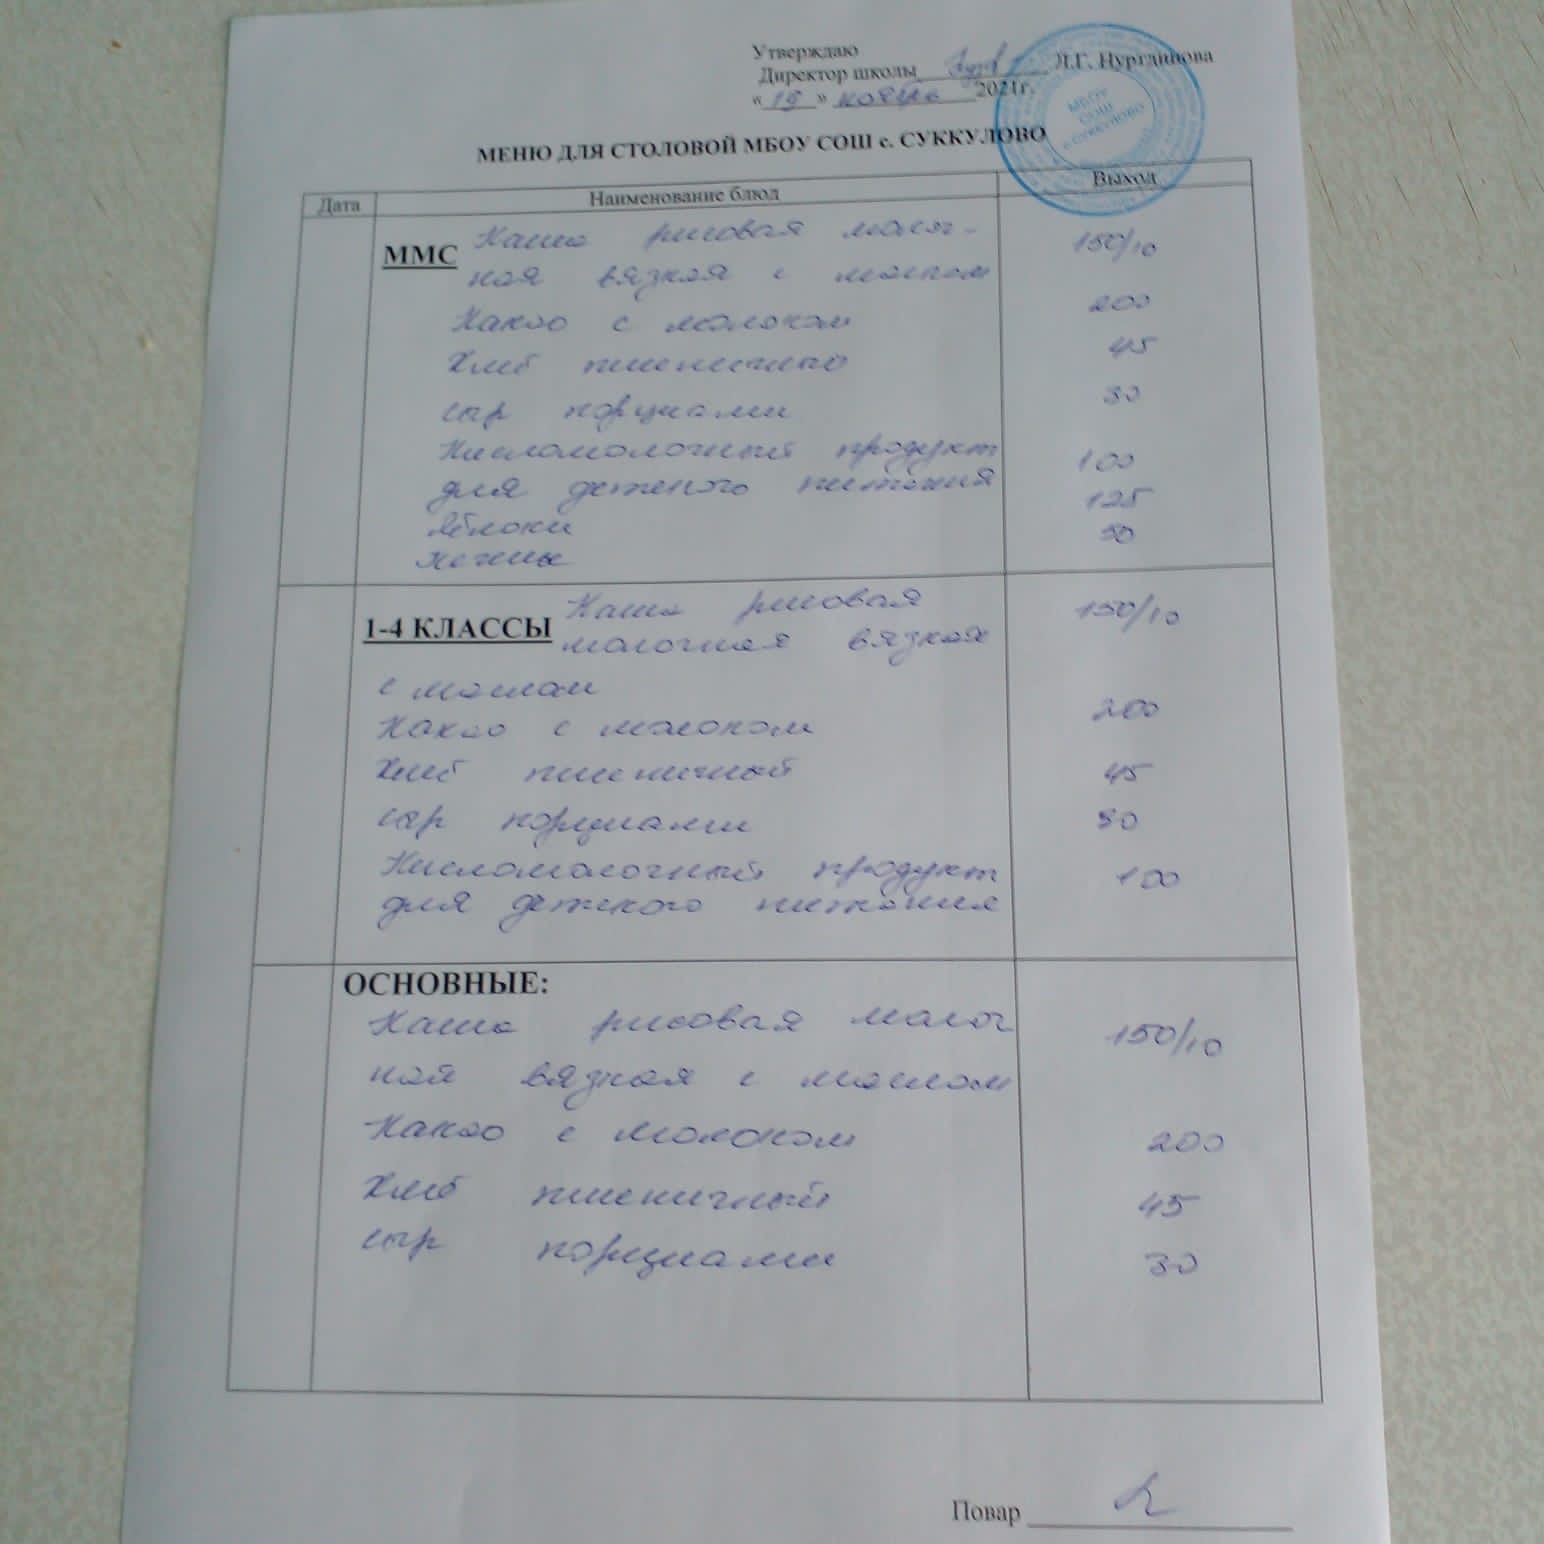 Утверждаю
Директор школы Л.Г. Нургдинова
« 19 » ноября 2021г.
МБОУ
СОШ
с.СУККУЛОВО
МЕНЮ ДЛЯ СТОЛОВОЙ МБОУ СОШ с. СУККУЛОВО
Дата Наименование блюд Выход
ММС Каша рисовая молоч- 150/10
ная вязкая с маслом
Какао с молоком 200
Хлеб пшеничный 45
сыр порциями 30
Кисломолочный продукт 100
для детского питания
яблоки 125
печенье 50
1-4 КЛАССЫ Каша рисовая 150/10
молочная вязкая
с маслом
Какао с молоком 200
Хлеб пшеничный 45
сыр порциями 30
Кисломолочный продукт 100
для детского питания
ОСНОВНЫЕ:
Каша рисовая молоч 150/10
ная вязкая с маслом
Какао с молоком 200
Хлеб пшеничный 45
сыр порциями 30
Повар